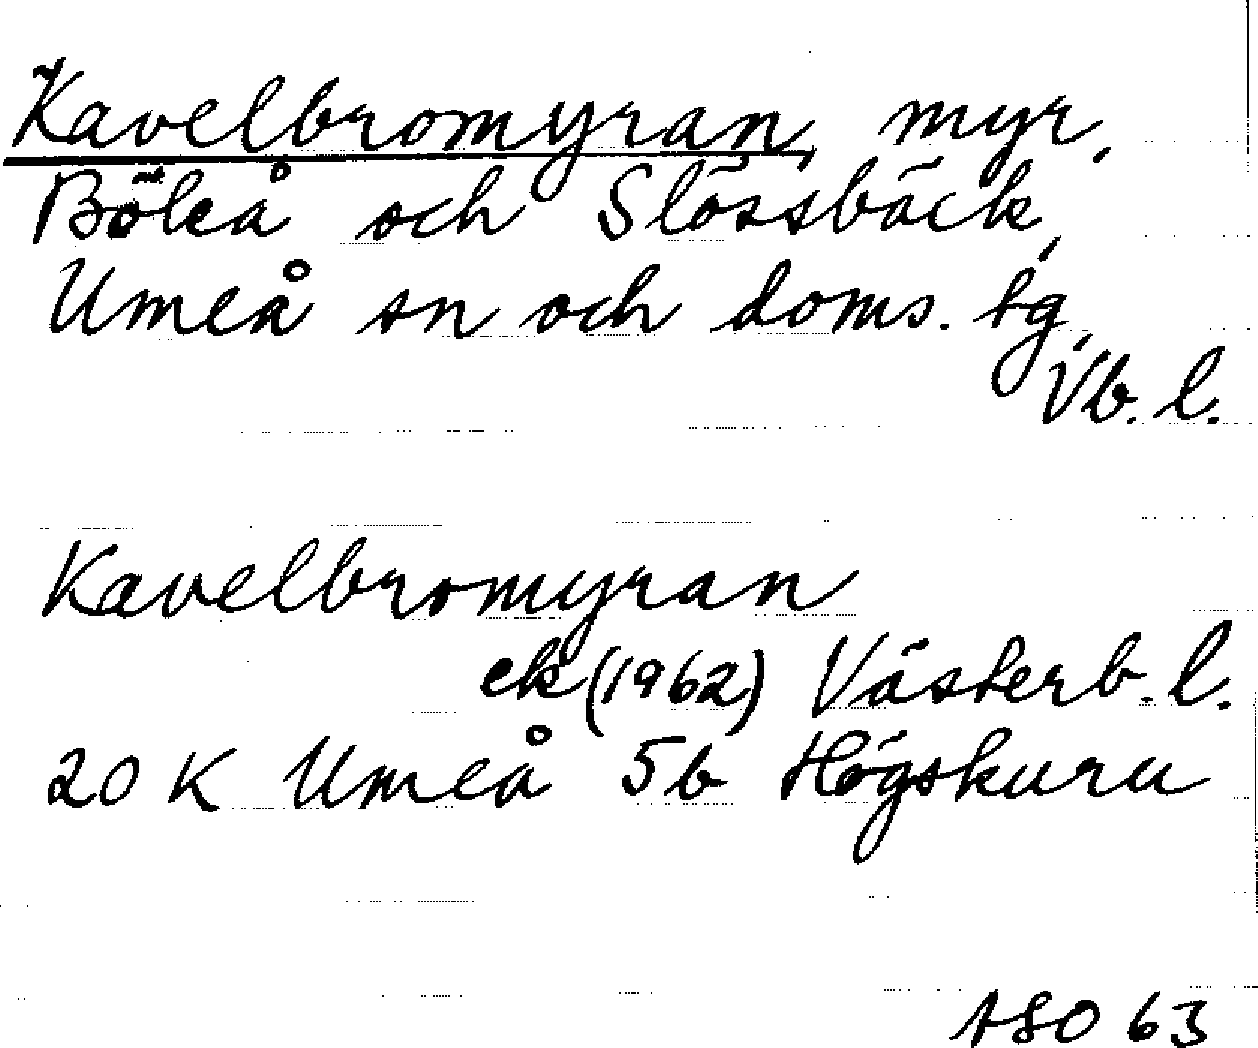 Kavelbromyran, myr,
Böleå och Slössbäck,
Umeå sn och doms. tg,
Vb. l.
Kavelbromyran
ek (1962) Västerb. l.
20 K Umeå 5b Högskuru
ASO 63